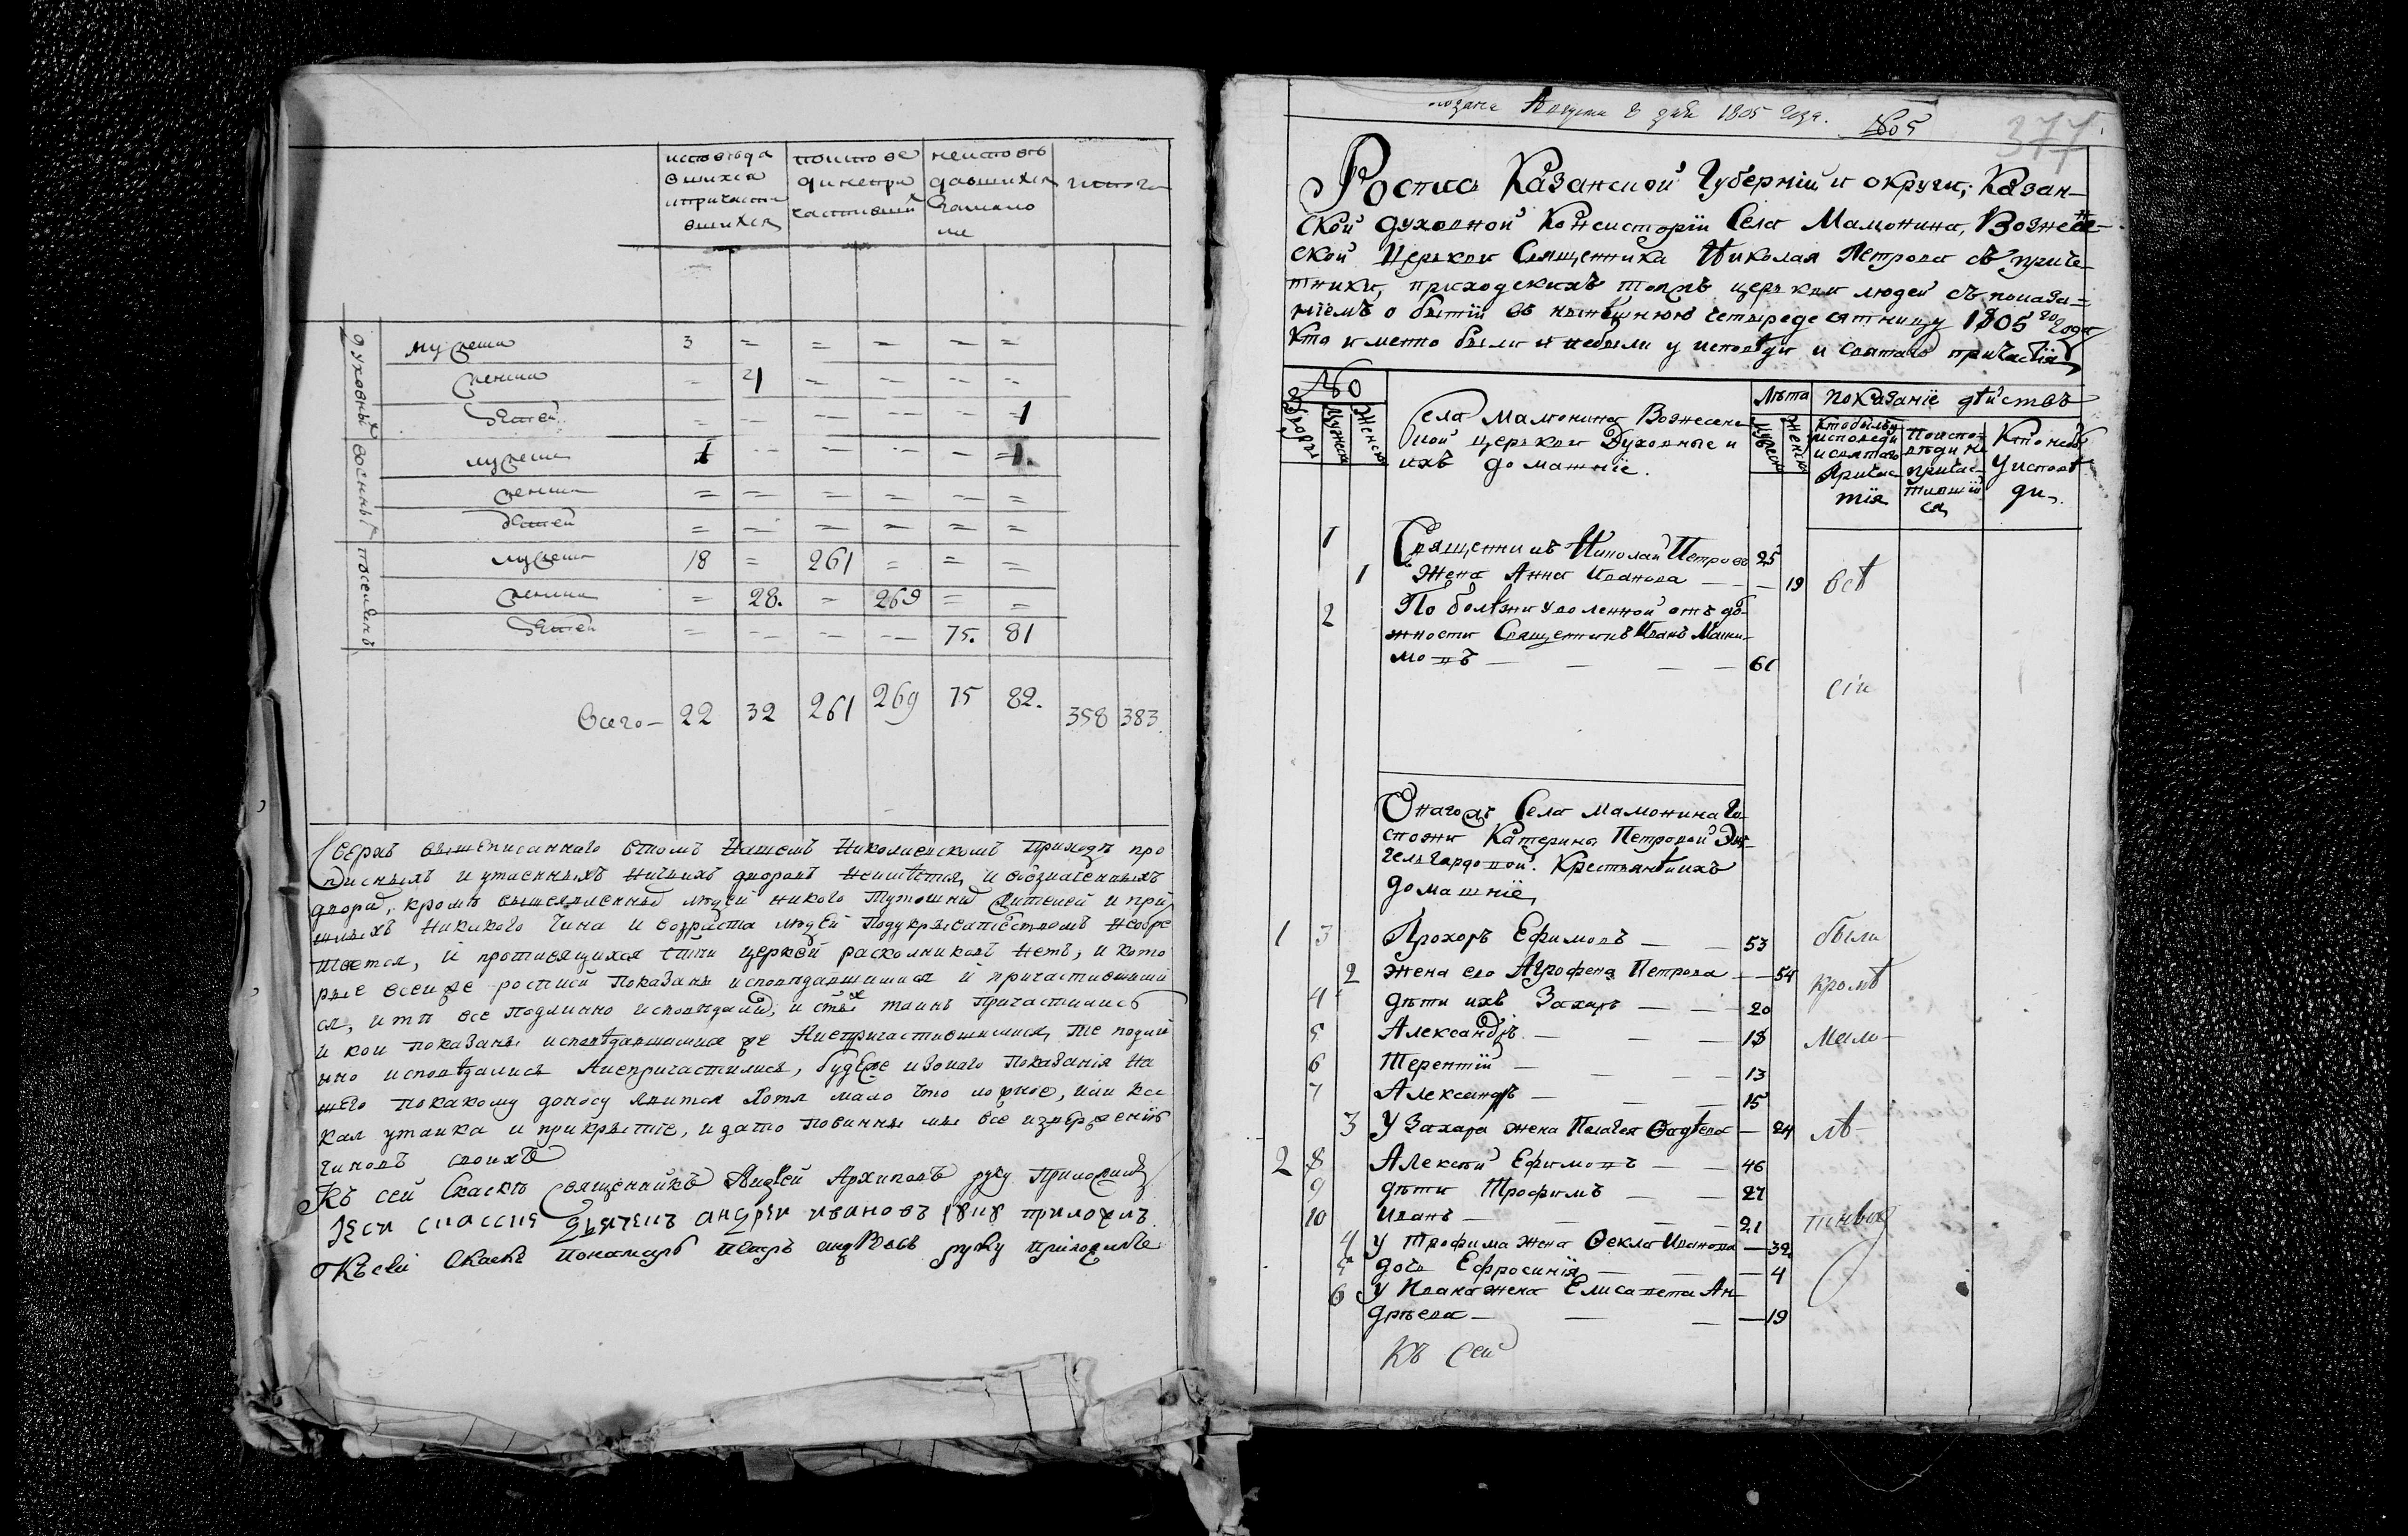 исповѣда
вшихся
ипричасти
вшихся
поиспове
динепри
частившихся
неисповѣ
давшихся
замало
итого
духовныхъ
мужеска 3 = = = = =
женска = 4 = = = =
дѣтей = = = = = 1
военныхъ
мужеска 1
женска = = = = = =
дѣтей = = = = = =
поселянъ
мужеска 18 = 261 = = =
женска = 28. = 269 = =
дѣтей = = = = 75. 81
Всего 22 32 261 269 75 82. 358 383.
Сверхъ вышеписаннаго втомъ Нашемъ Николаевскомъ Приходѣ про
писныхъ и утаенныхъ Ничьихъ дворовъ Неимѣется, и
кромѣ никого и при
шлыхъ Никакого Чина и возраста людей Подукрывательствомъ Необре
тается, и противящихся церкви раскольниковъ Нетъ, и кото
рые Всейже росписи Показаны исповѣдавшимися и причастившими
ся, и тѣ все Подлинно исповѣдались, и таинъ Причастились
И кои показаны исповѣдавшимися же Анепричастившимися, те подли
нно исповѣдались Анепричастились, будеже изонаго Показанія На
шего покакому доносу явится Хотя мало что ложное, или ка
кая утайка и прикрытие, и зато Повинны мы все изверженію
чиновъ своихъ
Къ сей Скаскѣ Священникъ Архиповъ руку Приложилъ
андреи ивановъ приложилъ
Ксеи Скаскѣ Пономарь руку Приложилъ
подана Августа 8 дня 1805 года.
№ 5
377
Роспись Казанской Губерніи и округи, Казан-
ской духовной Консисторіи Села Мамонина, Вознесен-
ской Церькви Священника Николая Петрова съ приче-
тники, приходскихъ тоя церькви людей съ показа-
ніемъ о бытіи въ нынѣшнюю четыредесятницу 1805го Года
Кто имянно были и небыли у исповѣди и Святаго причастія
№
Дворы
Мужеска
Женска
Села Мамонина Вознесен
ской церькви Духовные и
ихъ домашніе.
Лѣта
Мужеска
Женска
показаніе дѣйствъ
Кто былъ у
исповеди
и святаго
Причас
тія
Поиспо-
вѣди не
причас-
тившій
ся
Кто небы
У исповѣ
ди
1 Священникъ Николай Петровъ 25
1 Жена Анна Иванова — — 19 всѣ
2 По болѣзни уволенной отъ до-
жности Священникъ Иванъ Макси-
мовъ — — — 61
сіи
Онагожъ Села Мамонина Го-
спожи Катерины Петровой Эн-
гельгардовой. Крестьянѣ и ихъ
домашніе,
1 3 Прохоръ Ефимовъ — — 53 были
2 жена его Агрофена Петрова — 54 кромѣ
4 дѣти ихъ Захаръ — — 20
5 Александръ — — 18 мало
6 Терентій — — 13
7 Александръ — — 15
3 У Захара жена Пелагея Фадѣева — 24 лѣ-
2 8 Алексѣй Ефимовъ — — 46
9 дѣти Трофимъ — — 27
10 Иванъ — — 21 тнихъ
4 у Трофима жена Ѳекла Иванова — 32
5 дочь Ефросинія — — 4
6 у Ивана жена Елисавета Ан
дрѣева — — 19
Къ Сей